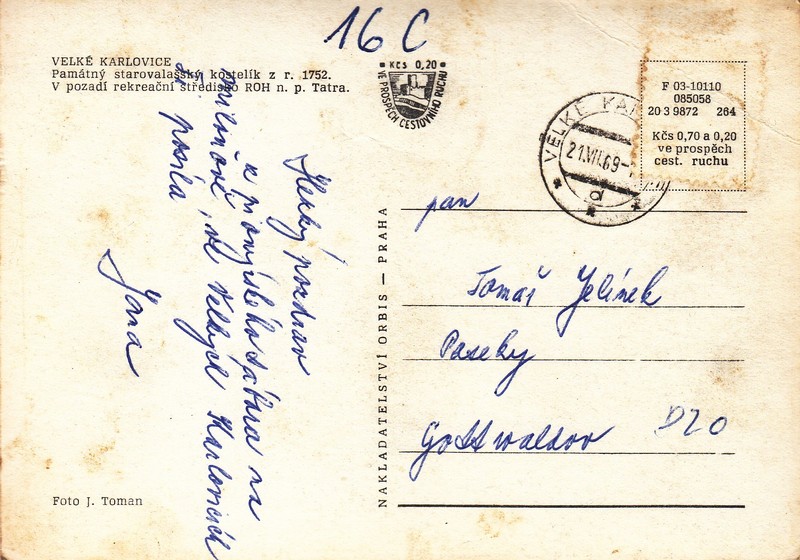 16 C
VELKÉ KARLOVICE
Památný starovalašský kostelík z r. 1752.
V pozadí rekreační středisko ROH n. p. Tatra.
Kčs 0,20
VE PROSPĚCH CESTOVNÍHO RUCHU
F 03-10110
085058
20 3 9872 264
Kčs 0,70 a 0,20
ve prospěch
cest. ruchu
VELKÉ KA
21.VII.69
d
Hezký pozdrav
z pionýrského tábora na
ve Velkých Karlovicích
ti posílá
Jana
NAKLADATELSTVÍ ORBIS — PRAHA
pan
Tomáš Jelínek
Paseky
Gottwaldov
Foto J. Toman